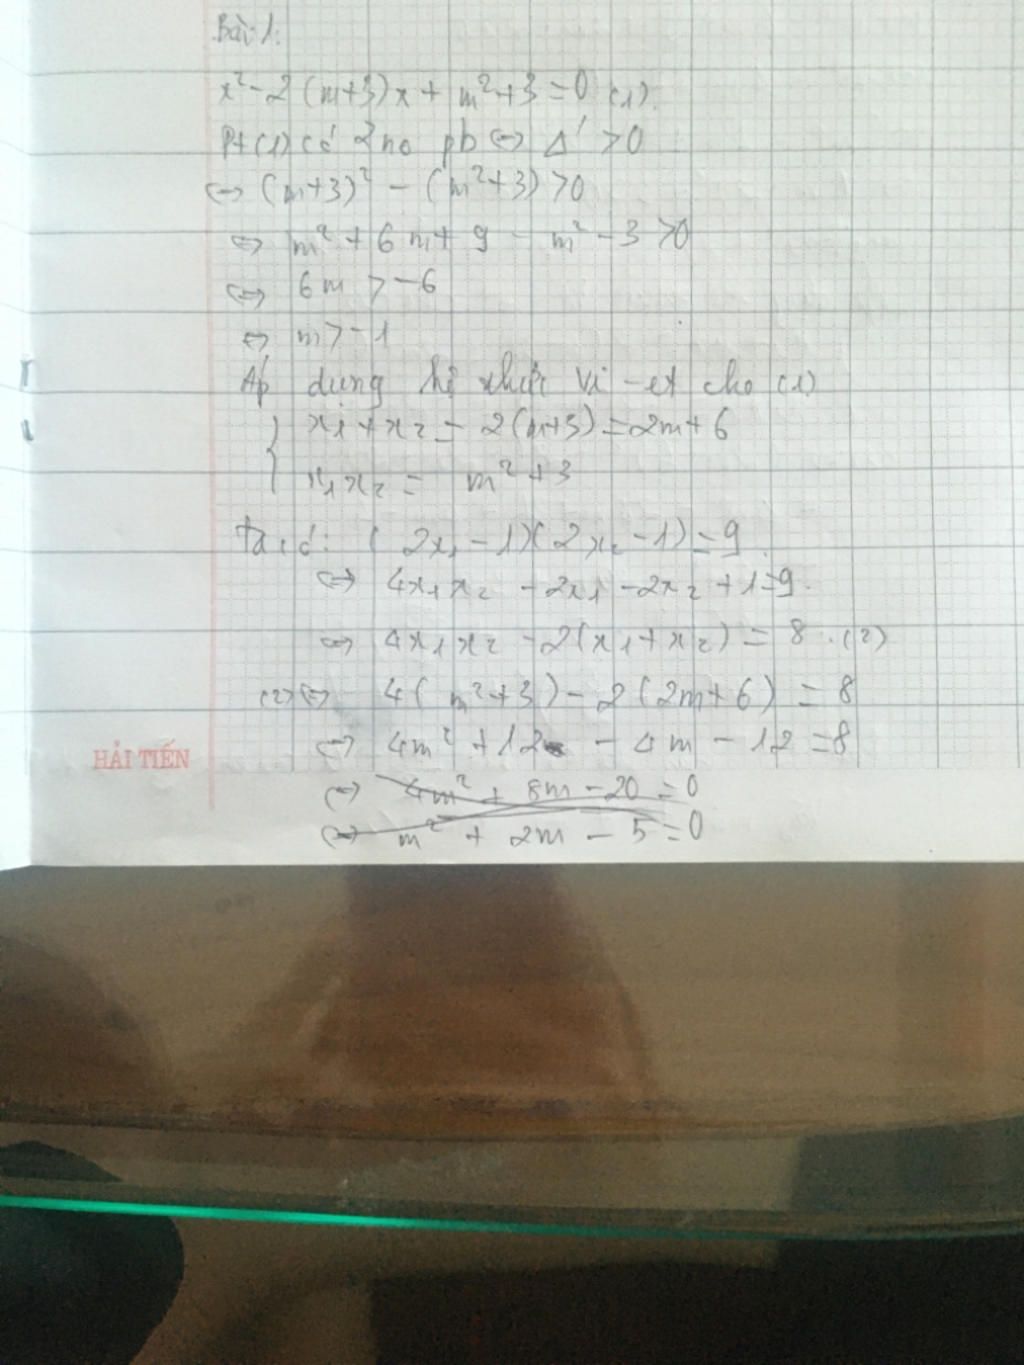 Bài 1:
x² - 2(m+3)x + m² + 3 = 0 (1).
Pt (1) có 2 no pb ⇔ Δ' > 0
⇔ (m+3)² - (m²+3) > 0
⇔ m² + 6m + 9 - m² - 3 > 0
⇔ 6m > -6
⇔ m > -1
Áp dụng hệ thức Vi-et cho (1)
x₁ + x₂ = 2(m+3) = 2m + 6
x₁x₂ = m² + 3
Ta có: (2x₁ - 1)(2x₂ - 1) = 9.
⇔ 4x₁x₂ - 2x₁ - 2x₂ + 1 = 9.
⇔ 4x₁x₂ - 2(x₁ + x₂) = 8. (2)
(2) ⇔ 4(m² + 3) - 2(2m + 6) = 8
⇔ 4m² + 12 - 4m - 12 = 8
HẢI TIẾN
⇔ 4m² + 8m - 20 = 0
⇔ m² + 2m - 5 = 0